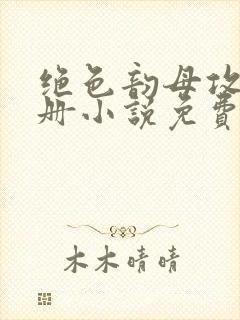 绝色韵母攻
册小说免費
木木晴晴